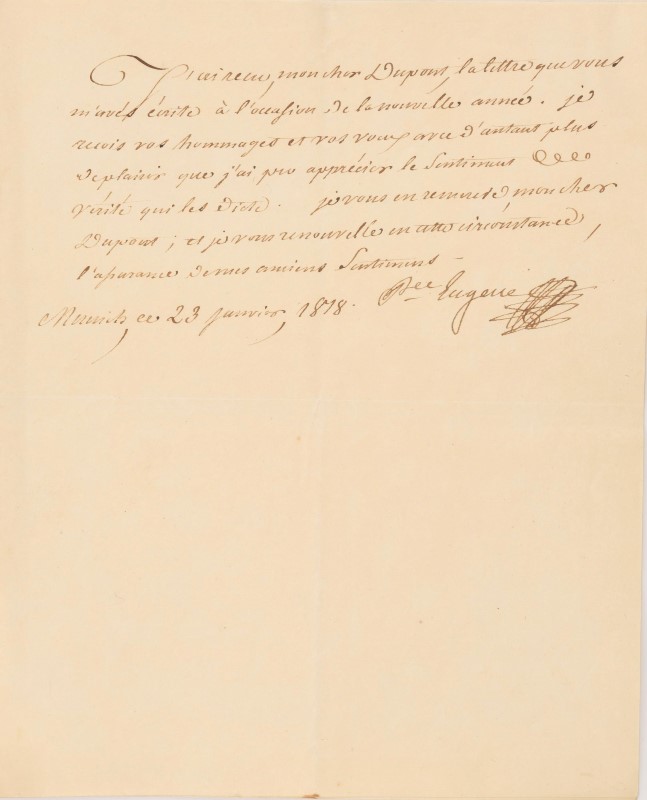 J'ai recu, mon cher Dupont, la lettre que vous
m'avés écrite à l'occasion de la nouvelle année. je
recois vos hommages et vos voeux avec d'autant plus
de plaisir que j'ai pu apprécier le Sentiment de
vérité qui les dicte. je vous en remercie mon cher
Dupont; et je vous renouvelle en cette circonstance,
l'assurance de mes anciens Sentimens
Pce Eugene
Munich, ce 23 janvier, 1818.